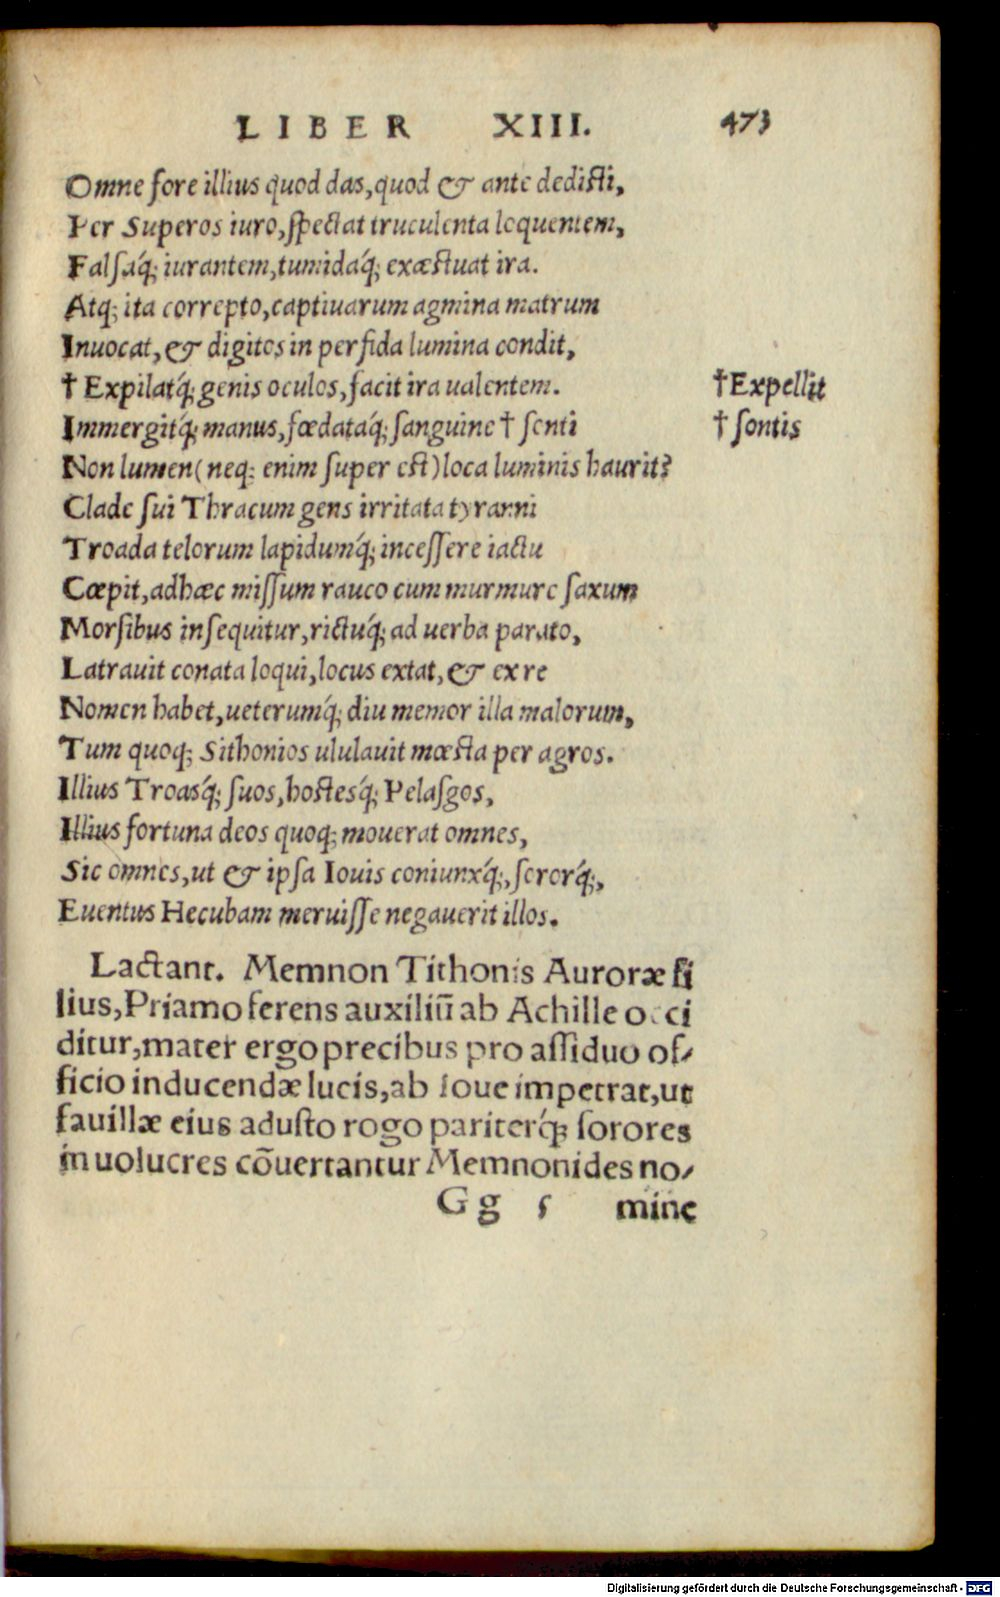 LIBER XIII. 473
Omne fore illius quod das, quod & ante dedisti,
Per Superos iuro, spectat truculenta loquentem,
Falsaq́; iurantem, tumidaq́; exæstuat ira.
Atq; ita correpto, captiuarum agmina matrum
Inuocat, & digitos in perfida lumina condit,
† Expilatq́; genis oculos, facit ira ualentem. †Expellit
Immergitq́; manus, fœdataq́; sanguine † senti † sontis
Non lumen (neq; enim super est) loca luminis haurit?
Clade sui Thracum gens irritata tyranni
Troada telorum lapidumq́; incessere iactu
Cœpit, ad hæc missum rauco cum murmure saxum
Morsibus insequitur, rictuq́; ad uerba parato,
Latrauit conata loqui, locus extat, & ex re
Nomen habet, ueterumq́; diu memor illa malorum,
Tum quoq; Sithonios ululauit mœsta per agros.
Illius Troasq́; suos, hostesq́; Pelasgos,
Illius fortuna deos quoq; mouerat omnes,
Sic omnes, ut & ipsa Iouis coniunxq́;, sororq́;,
Euentus Hecubam meruisse negauerit illos.
Lactant. Memnon Tithonis Auroræ fi
lius, Priamo ferens auxiliū ab Achille occi
ditur, mater ergo precibus pro assiduo of-
ficio inducendæ lucis, ab Ioue impetrat, ut
fauillæ eius adusto rogo pariterq́; sorores
in uolucres cōuertantur Memnonides no-
Gg 5 mine
Digitalisierung gefördert durch die Deutsche Forschungsgemeinschaft - DFG